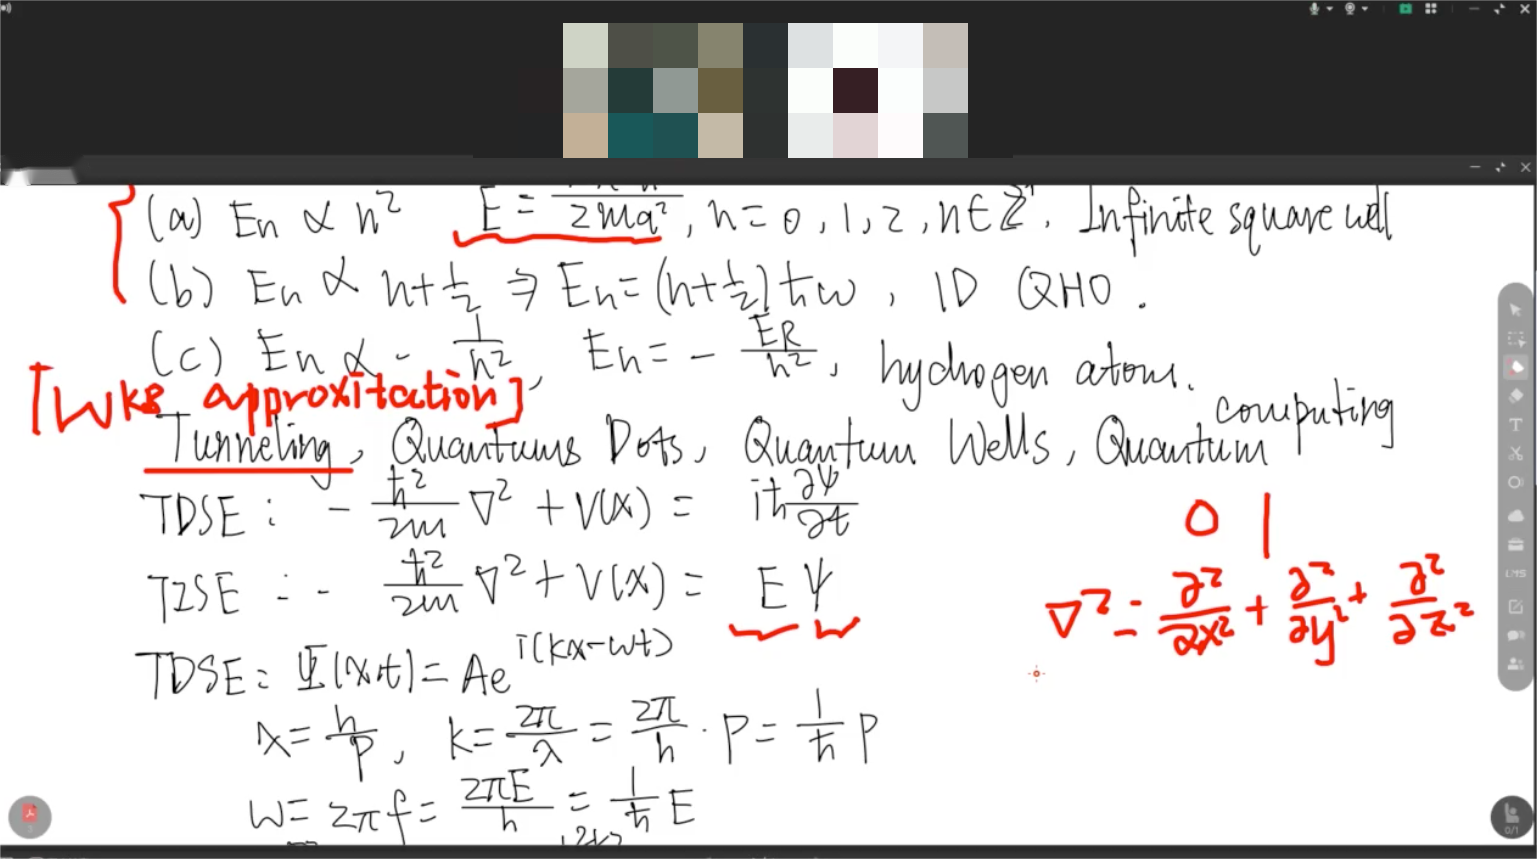 (a) En ∝ n² E = ───/2ma², n=0,1,2, n∈Z⁺. Infinite square well
(b) En ∝ n+1/2 ⇒ En=(n+1/2)ħw, 1D QHO.
(c) En ∝ - 1/n², En = - ER/n², hydrogen atom.
[WKB approxitation]
Tunneling, Quantums Dots, Quantum Wells, Quantum computing
TDSE: - ħ²/2m ∇² + V(x) = iħ ∂Ψ/∂t
0 1
TISE: - ħ²/2m ∇² + V(x) = EΨ
∇² = ∂²/∂x² + ∂²/∂y² + ∂²/∂z²
TDSE: Ψ(x,t) = Ae^i(kx-wt)
λ = h/p, k = 2π/λ = 2π/h · p = 1/ħ p
w = 2πf = 2πE/h = 1/ħ E
LMS
0/1